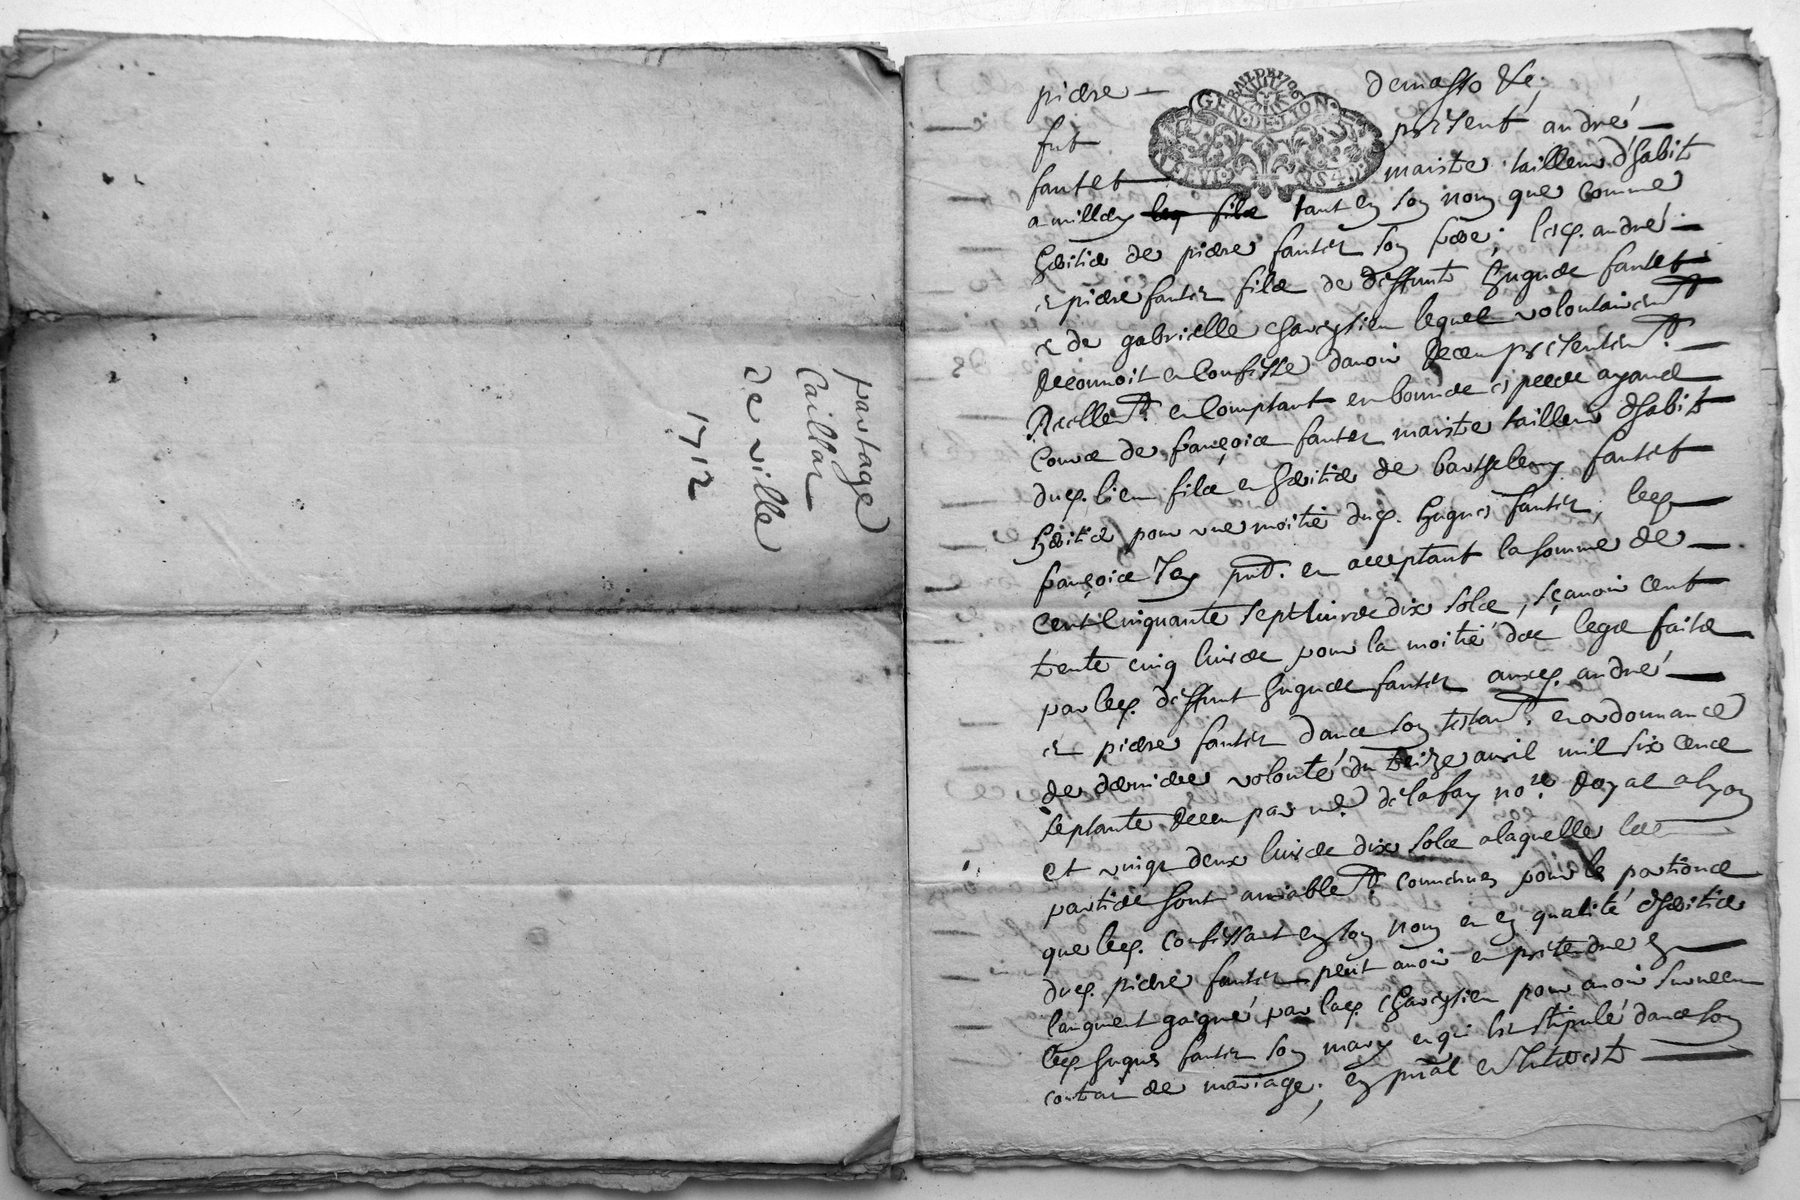 partage
Caillar
de ville
1712
BAIL DE 1706
GEN·DE·LYON
piere — demasso &c
fut present andré —
fantet — maistre tailleur d'habit
a millery tant en son nom que comme
heritier de piere fantet son frere; lesq. andré —
et piere fantet filz de deffunt hugues fantet
et de gabrielle chareysieu lequel volontairemt
reconnoit et confesse davoir receu presentemt. —
reellemt. et comptant en bonnes especes ayant
cours de françois fantet maistre tailleur d'habit
dud. lieu filz et heritier de barthelemy fantet
heritier pour une moitié dud. hugues fantet, led. —
françois icy pnt. et acceptant la somme de —
cent cinquante sept livres dix solz, sçavoir cent
trente cinq livres pour la moitié des legs faits
par led. deffunt hugues fantet ausd. andré —
et piere fantet dans son testamt. et ordonnance
de derniere volonté du treize avril mil six cens
septante receu par me. delafay nore. royal a lyon
et vingt deux livres dix solz a laquelle les
parties sont amiablemt. convenues pour les portions
que led. confessant en son nom et en qualité d'heritier
dud. piere fantet peut avoir et pretendre en —
laugment gaigné par lad. chareysieu pour avoir survecu
led. hugues fantet son mary et qui est stipulé dans son
contrat de mariage; en pnal et interests —